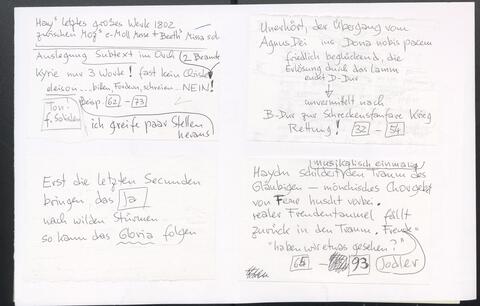 Hay" letztes großes Werk 1802
zwischen Moz" c-Moll Messe + Beeth" Missa sol.
Auslegung Subtext im Orch
Kyrie nur 3 Worte! fast kein Christe
eleison... bitten, Fordern, schreien... NEIN!
Ton:
f. Solisten
Beisp. 62 - 73
ich greife paar Stellen
heraus
Erst die letzten Secunden
bringen das Ja
nach wilden Stürmen
so kann das Gloria folgen
Unerhört, der Übergang vom
Agnus Dei ins Dona nobis pacem
friedlich beglückend, die
Erlösung durch das Lamm
endet D-Dur
unvermittelt nach
B-Dur zur Schreckensfanfare Krieg
Rettung! 32 - 54
musikalisch einmalig
Haydn schildert den Traum des
Gläubigen – mönchisches Chorgebet
von Ferne huscht vorbei.
realer Freudentaumel fällt
zurück in den Traum. Freude
"haben wir etwas gesehen?"
65 - 93 Jodler